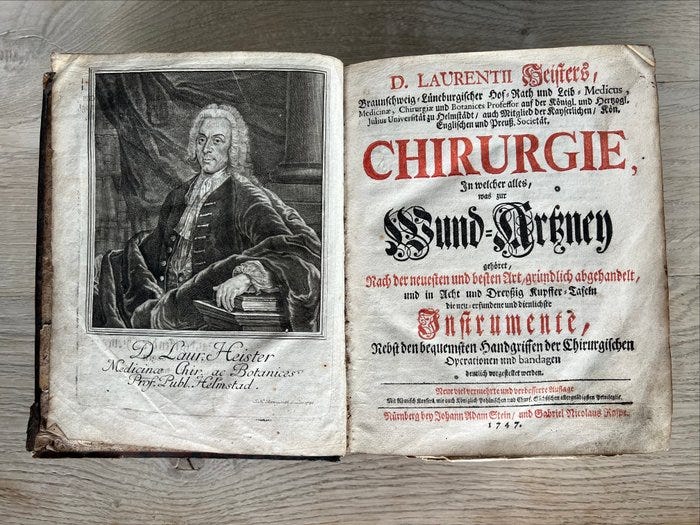 D. Laur. Heister
Medicinæ Chir. ac Botanices
Prof. Publ. Helmstad.
D. LAURENTII Heisters,
Braunschweig-Lüneburgischer Hof-Rath und Leib-Medicus,
Medicinæ, Chirurgiæ und Botanices Professor auf der Königl. und Hertzogl.
Julius Universität zu Helmstädt, auch Mitglied der Kayserlichen, Kön.
Englischen und Preuß. Societät.
CHIRURGIE,
In welcher alles,
was zur
Wund-Artzney
gehöret,
Nach der neuesten und besten Art, gründlich abgehandelt,
und in Acht und Dreyßig Kupffer-Tafeln
die neu-erfundene und dienlichste
Instrumente,
Nebst den bequemsten Handgriffen der Chirurgischen
Operationen und bandagen
deutlich vorgestellet werden.
Neue viel vermehrte und verbesserte Auflage
Mit Römisch Kayserl. wie auch Königlich Pohlnischen und Churf. Sächsischen allergnädigsten Privilegiis.
Nürnberg bey Johann Adam Stein, und Gabriel Nicolaus Raspe.
1747.